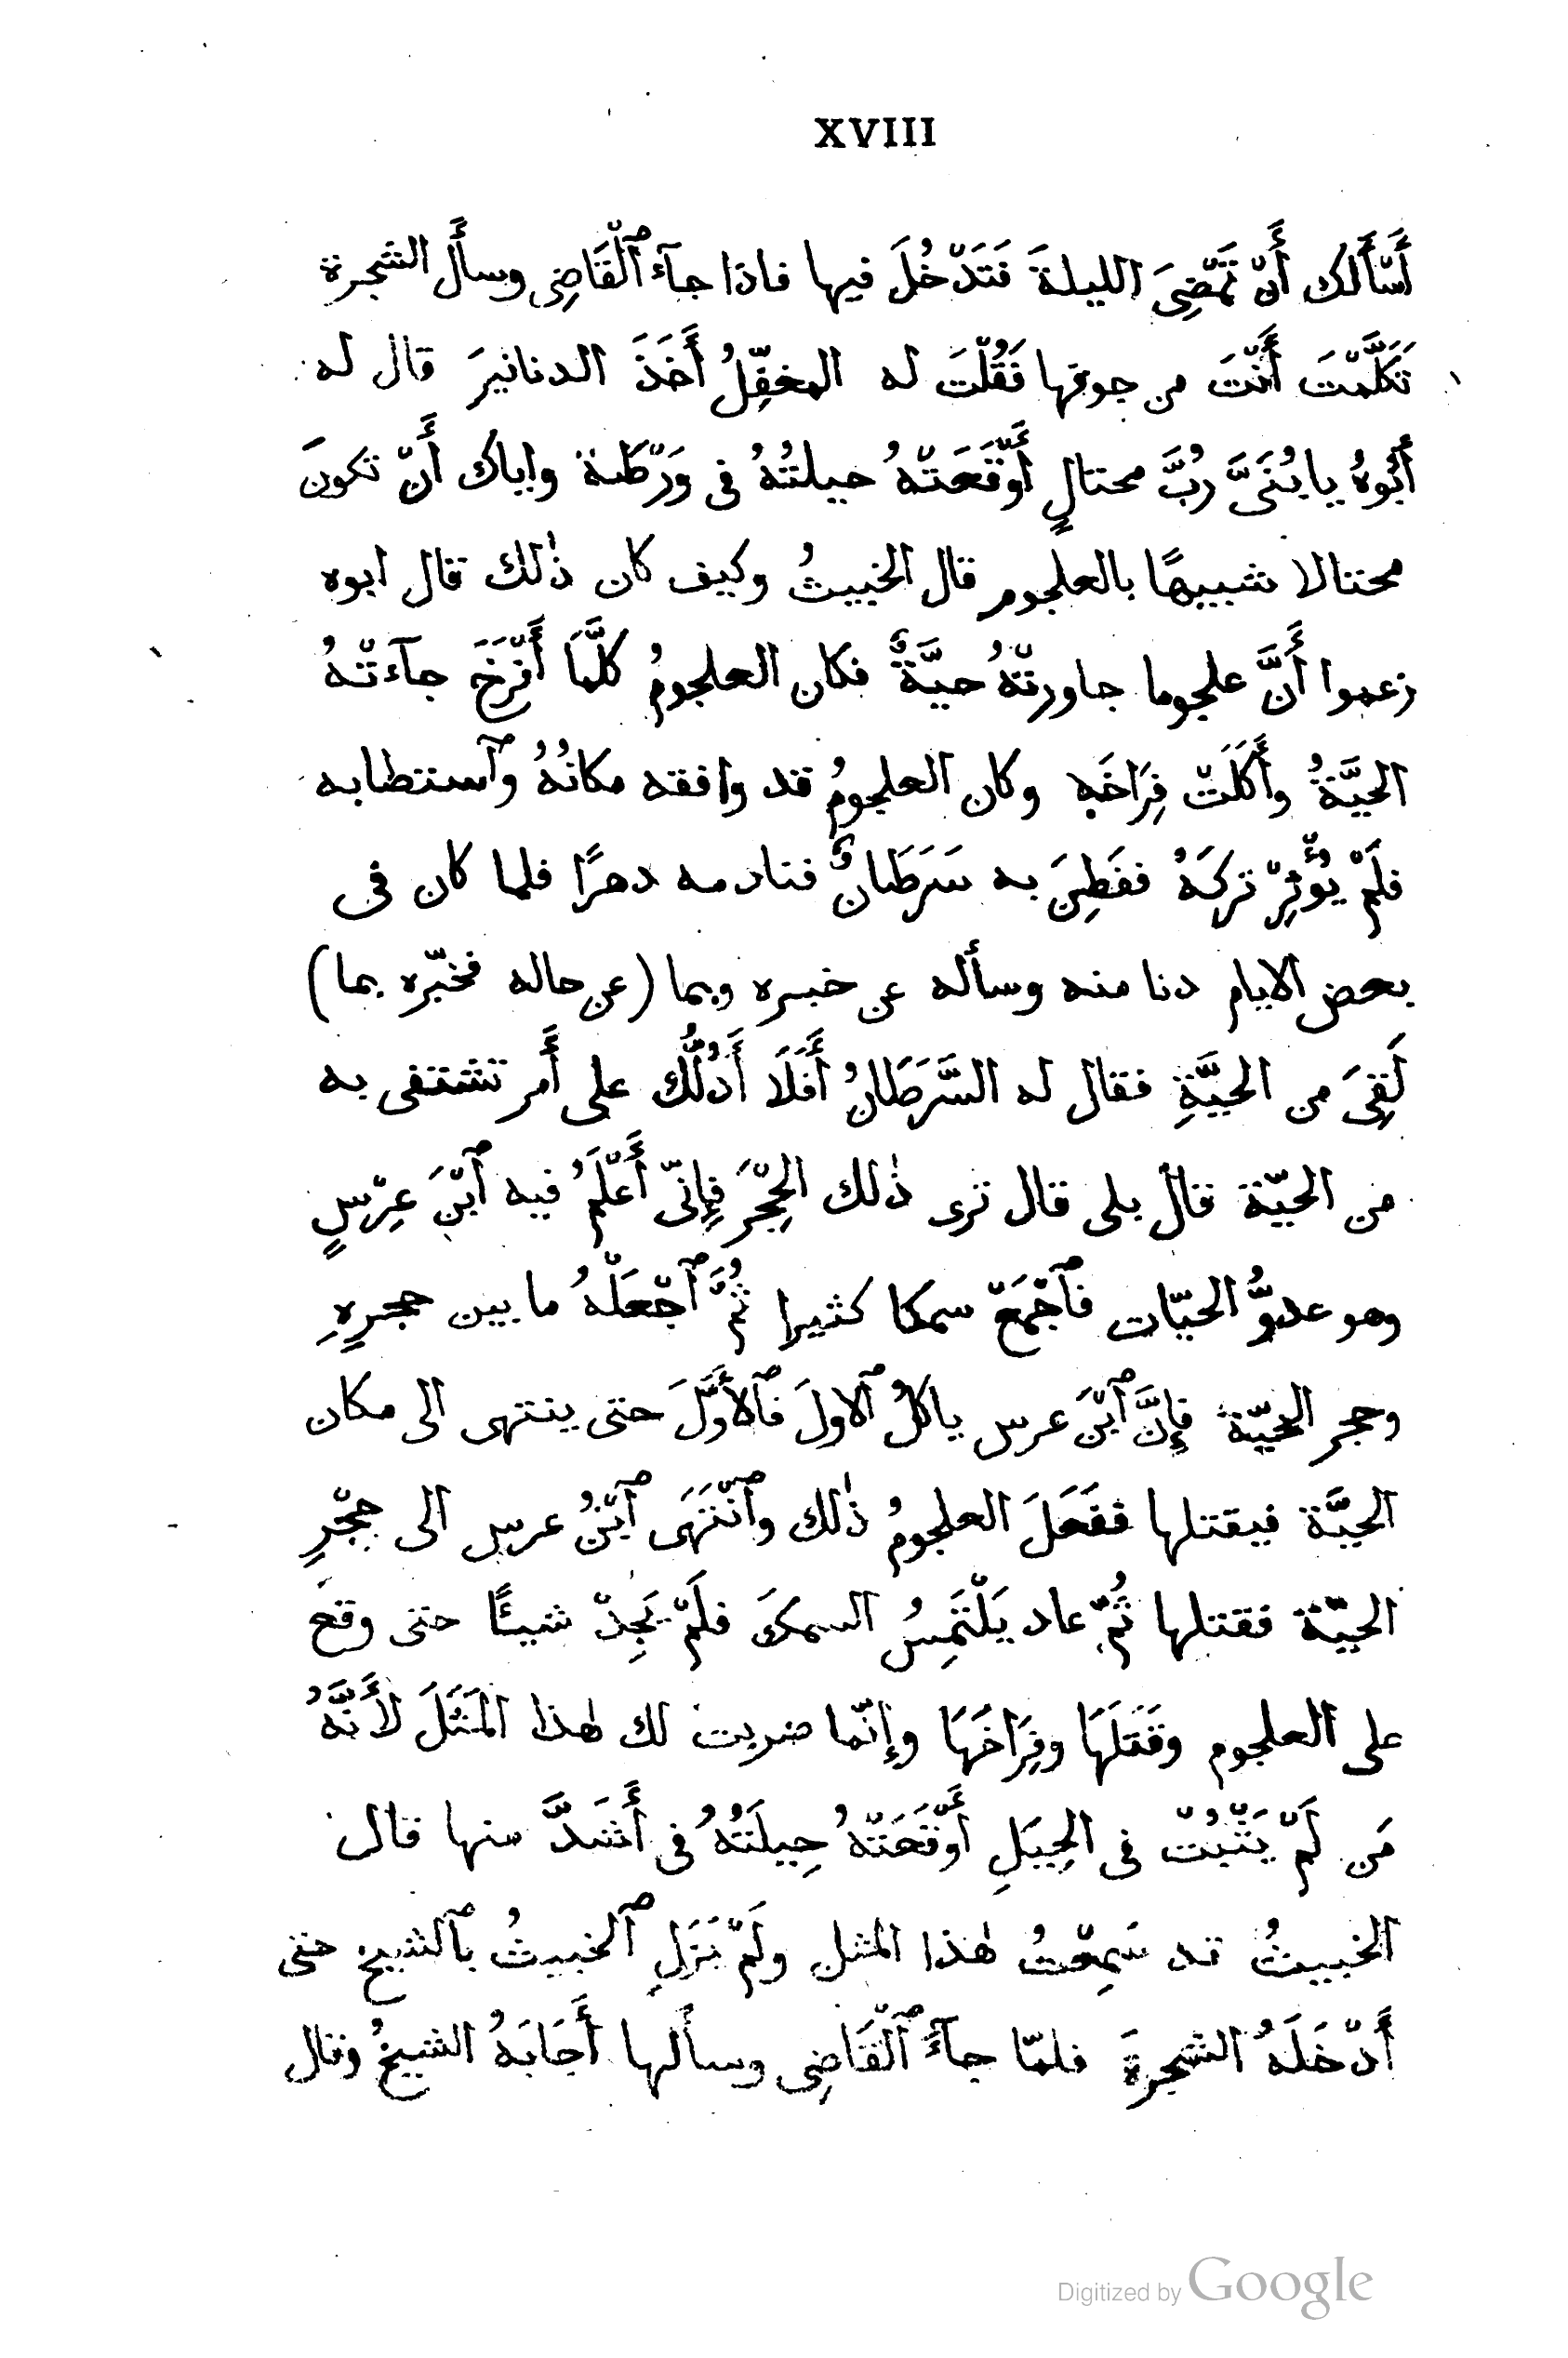 XVIII
أَسْأَلك أَنْ تَمْضِىَ الليلةَ فَتَدْخُلَ فيها فاذا جآءَ ٱلْقَاضِى وسأَل الشجرة
تَكَلَّمْتَ أَنْتَ من جوفها فَقُلْتَ له المغفِّلُ أَخَذَ الدنانيرَ قال له
أَبُوهُ يا بُنَىَّ رُبَّ محتالٍ أَوْقَعَتْهُ حيلتُهُ فى وَرْطَة واياك أَنْ تكونَ
محتالا شبيهًا بالعلجوم قال الخبيثُ وكيف كان ذٰلك قال ابوه
زعموا أَنَّ علجوما جاورتْهُ حيَّةٌ فكان العلجومُ كلَّمَا أَفْرَخَ جآءَتْهُ
الحيَّةُ وأَكَلَتْ فِرَاخَه وكان العلجومُ قد وافقه مكانُهُ وٱستطابه
فلَمْ يُؤْثِرْ تركَهُ ففَطِنَ به سَرَطَانٌ فنادمه دهرًا فلما كان فى
بعض الايام دنا منه وسأله عن خبره وبما (عن حاله فخبّره بما)
لَقِىَ من الحيَّةِ فقال له السَّرَطَانُ أَفَلَا أَدُلُّك على أَمر تشتفى به
من الحيّة قال بلى قال ترى ذٰلك الحِجْرَ فإِنّى أَعْلَمُ فيه ٱبْنَ عِرْسٍ
وهو عدوُّ الحيّات فٱجْمَعْ سمكا كثيرا ثُمَّ ٱجْعَلْهُ ما بين حجرِهِ
وحجر الحيّة فإِنَّ ٱبْنَ عرس ياكلُ ٱلاولَ فٱلأَوَّلَ حتى ينتهى الى مكان
الحيَّة فيقتلها ففَعَلَ العلجومُ ذٰلك وٱنْتَهَى ٱبْنُ عرس الى حِجْرِ
الحيّة فقتلها ثُمَّ عاد يَلْتَمِسُ السمكَ فلَمْ يَجِدْ شيئًا حتى وقع
على العلجوم وقَتَلَهَا وفِرَاخَهَا وإنّما ضربت لك هٰذا المَثَلَ لأَنَّهُ
مَن لَمْ يَثْبُتْ فى الحِيَلِ أَوْقَعَتْهُ حِيلَتُهُ فى أَشَدَّ منها قال
الخبيثُ قد سَمِعْتُ هٰذا المثل ولَمْ يَزَلِ ٱلخبيثُ بٱلشيخ حتى
أَدْخَلَهُ الشجرةَ فلمّا جآءَ ٱلْقَاضِى وسألها أَجَابَهُ الشيخُ وقال
Digitized by Google